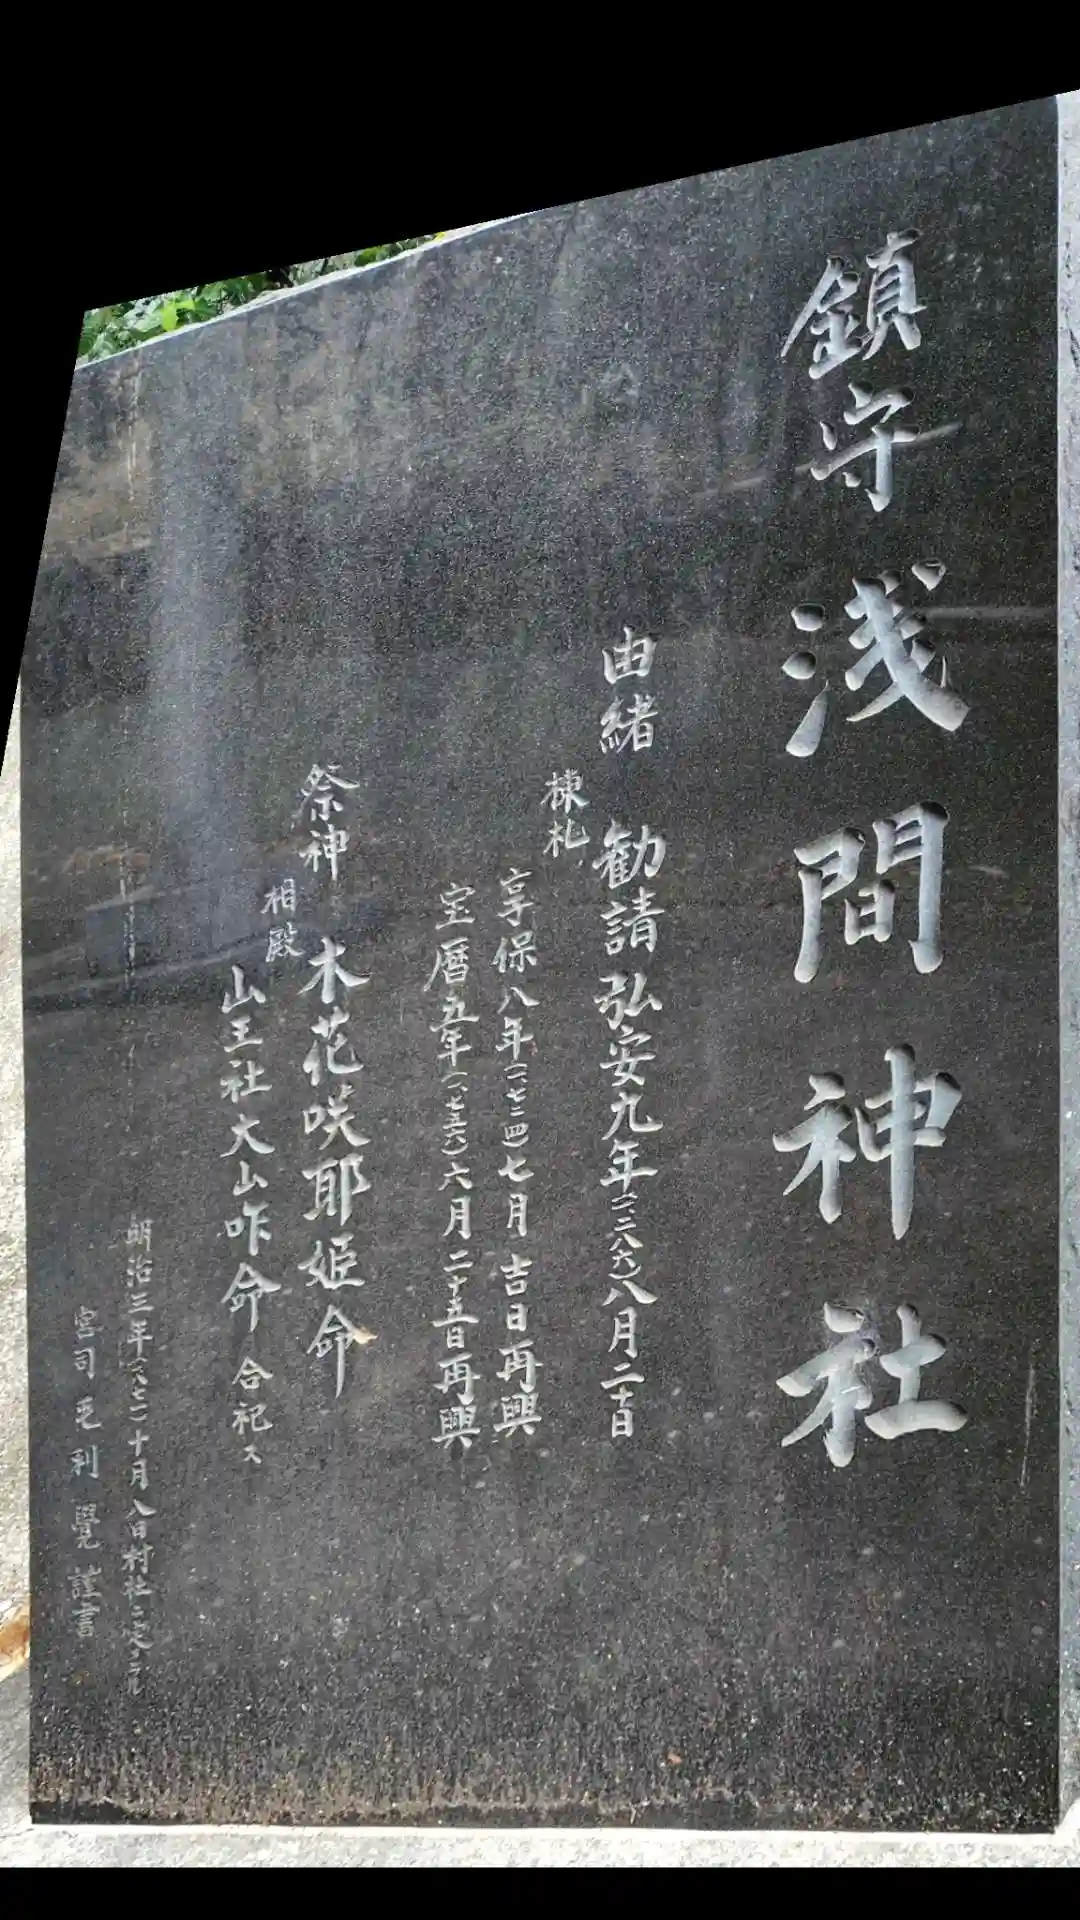 鎮守浅間神社
由緒 勧請弘安九年(一、二八六)八月二十日
棟札
享保八年(一、七二四)七月吉日再興
宝暦五年(一、七五六)六月二十五日再興
祭神 木花咲耶姫命
相殿
山王社大山咋命 合祀ス
明治三年(一八七一)十月八日村社ニ定メラル
宮司毛利覺謹書